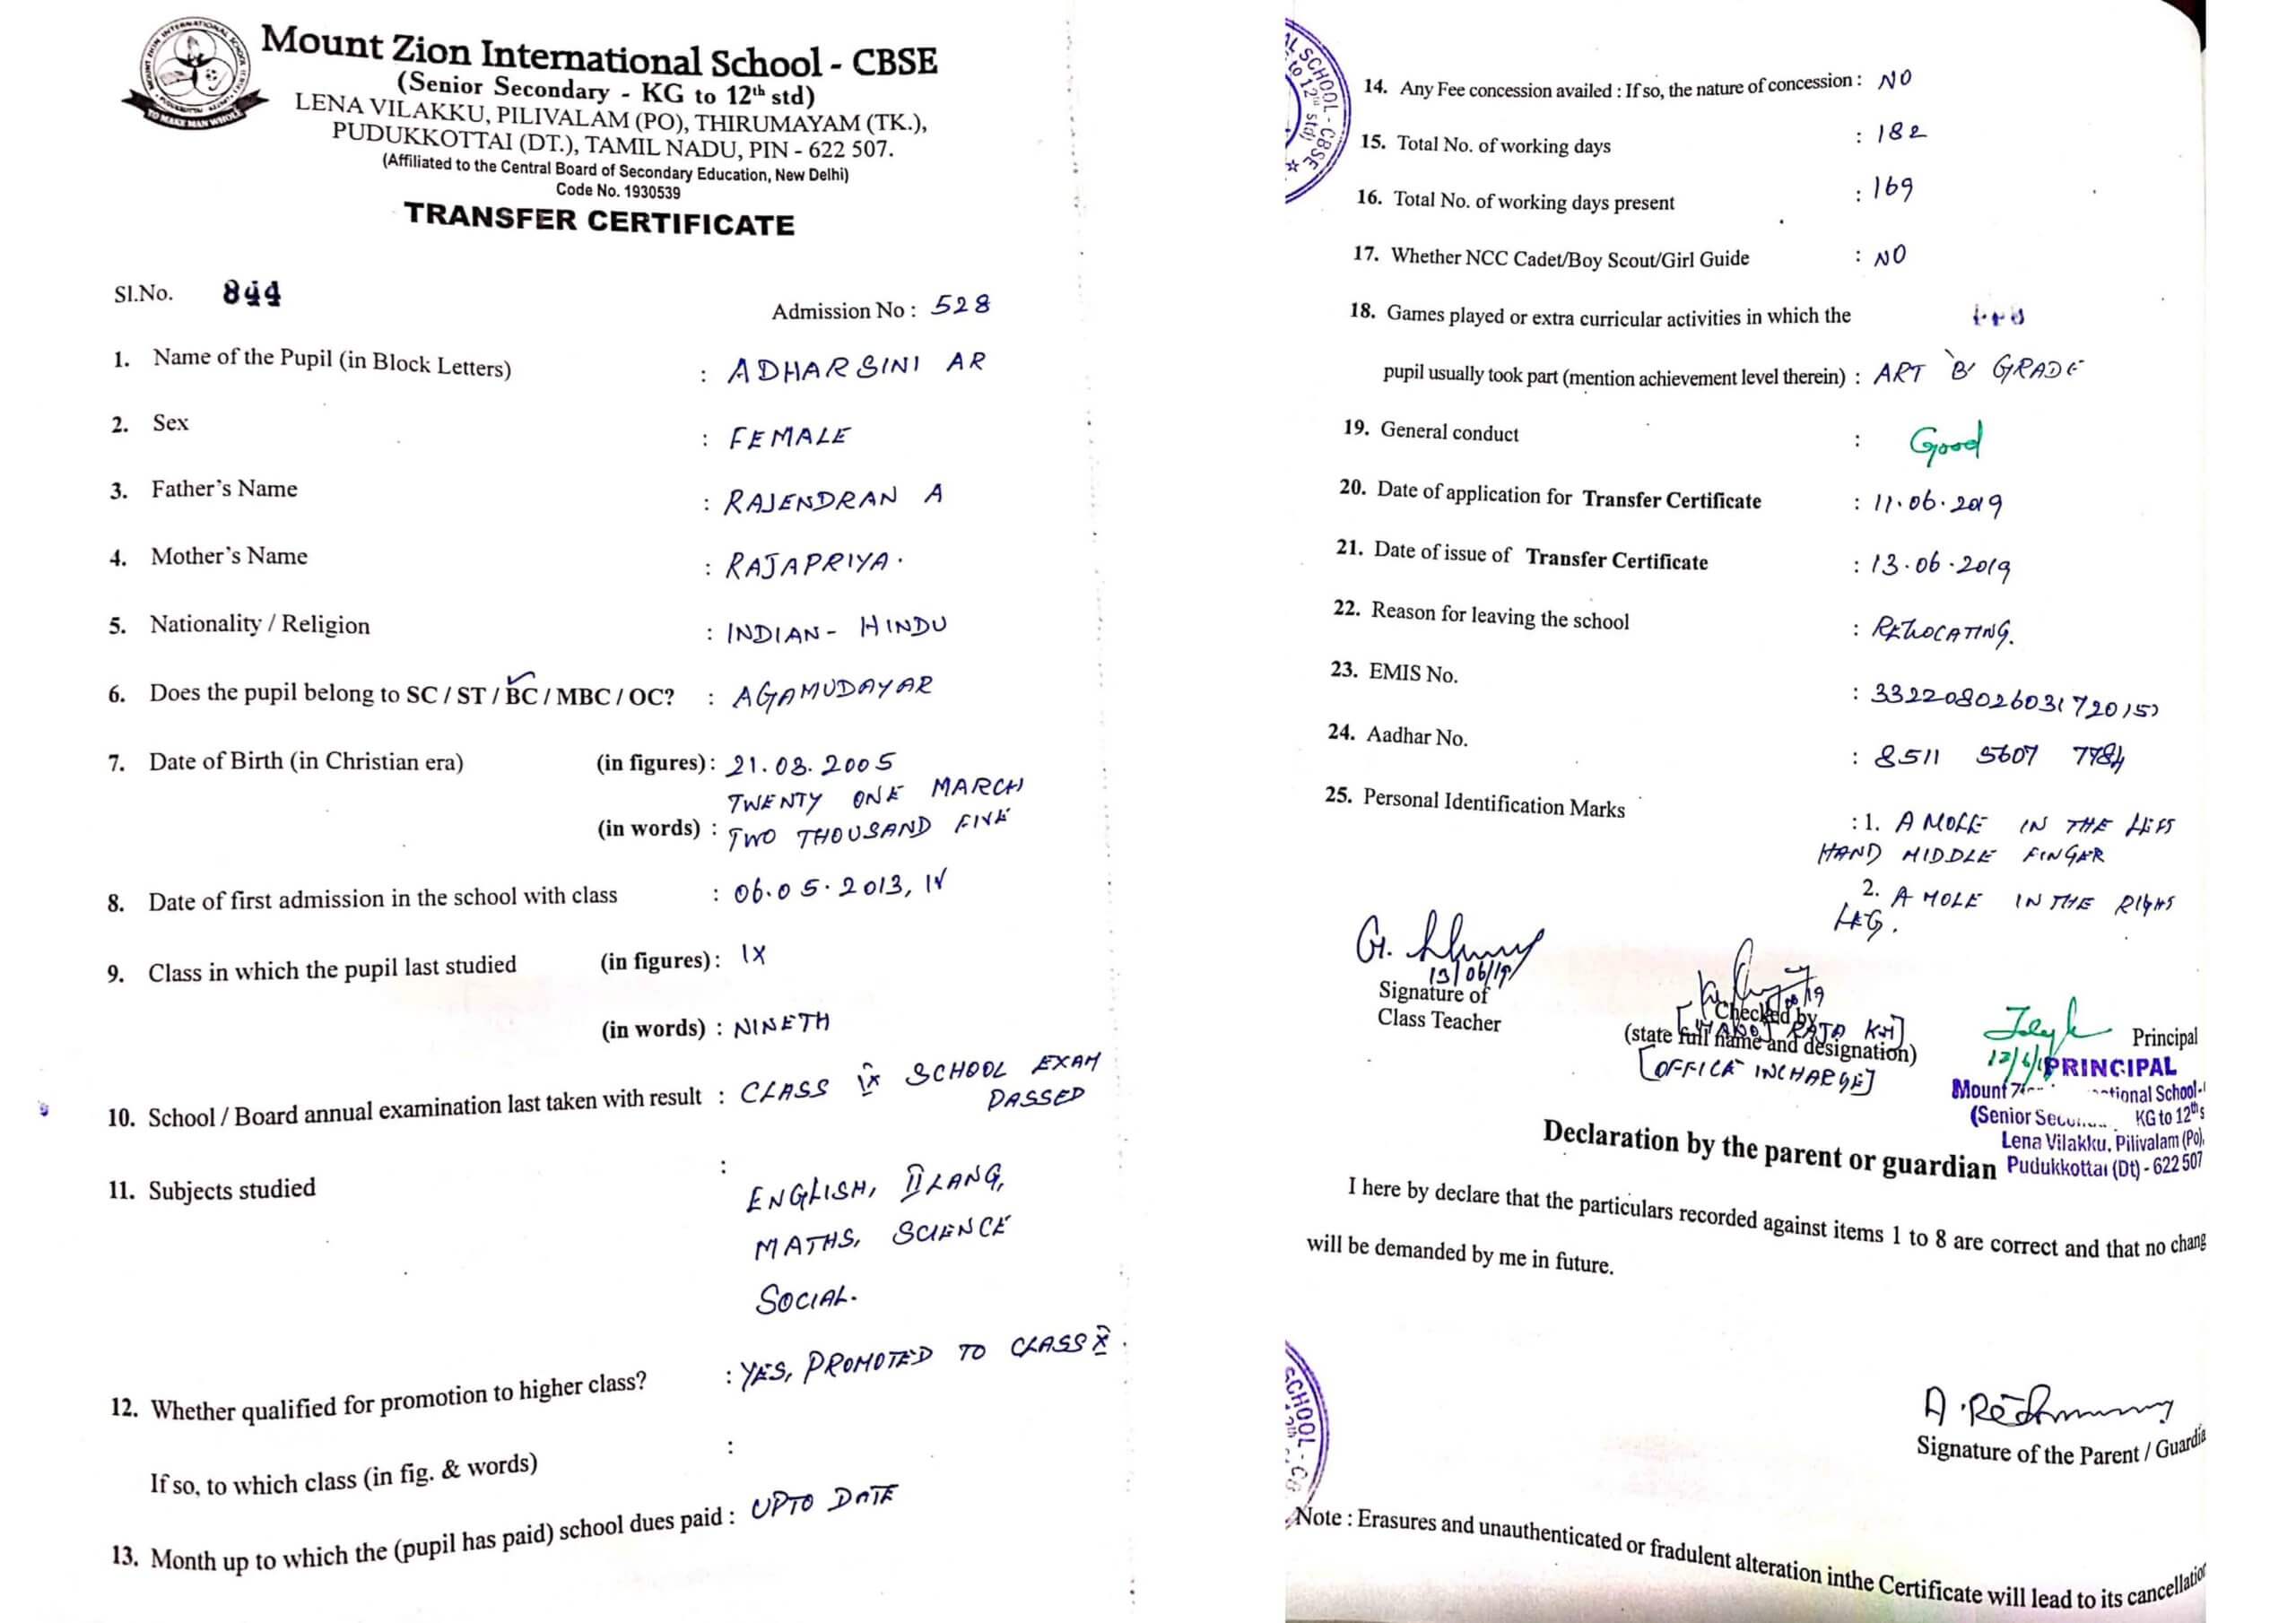 Mount Zion International School - CBSE
(Senior Secondary - KG to 12th std)
LENA VILAKKU, PILIVALAM (PO), THIRUMAYAM (TK.),
PUDUKKOTTAI (DT.), TAMIL NADU, PIN - 622 507.
(Affiliated to the Central Board of Secondary Education, New Delhi)
Code No. 1930539
TRANSFER CERTIFICATE
TO MAKE MAN WHOLE
Sl.No. 844
Admission No : 528
1. Name of the Pupil (in Block Letters) : ADHARSINI AR
2. Sex : FEMALE
3. Father's Name : RAJENDRAN A
4. Mother's Name : RAJAPRIYA.
5. Nationality / Religion : INDIAN - HINDU
6. Does the pupil belong to SC / ST / BC / MBC / OC? : AGAMUDAYAR
7. Date of Birth (in Christian era) (in figures) : 21.03.2005
TWENTY ONE MARCH
(in words) : TWO THOUSAND FIVE
8. Date of first admission in the school with class : 06.05.2013, IV
9. Class in which the pupil last studied (in figures) : IX
(in words) : NINETH
10. School / Board annual examination last taken with result : CLASS IX SCHOOL EXAM
PASSED
11. Subjects studied :
ENGLISH, II LANG,
MATHS, SCIENCE
SOCIAL.
12. Whether qualified for promotion to higher class? : YES, PROMOTED TO CLASS X.
If so, to which class (in fig. & words) :
13. Month up to which the (pupil has paid) school dues paid : UPTO DATE
AL SCHOOL - CBSE
to 12th std)
14. Any Fee concession availed : If so, the nature of concession : NO
15. Total No. of working days : 182
16. Total No. of working days present : 169
17. Whether NCC Cadet/Boy Scout/Girl Guide : NO
18. Games played or extra curricular activities in which the
pupil usually took part (mention achievement level therein) : ART 'B' GRADE
19. General conduct : Good
20. Date of application for Transfer Certificate : 11.06.2019
21. Date of issue of Transfer Certificate : 13.06.2019
22. Reason for leaving the school : RELOCATING.
23. EMIS No. :
24. Aadhar No. : 8511 5607 7784
25. Personal Identification Marks
: 1. A MOLE IN THE LEFT
HAND MIDDLE FINGAR
2. A MOLE IN THE RIGHT
LEG.
G.
13/06/19
Signature of
Class Teacher
Checked by
RAJA K.M]
(state full name and designation)
[OFFICE INCHARGE]
Principal
PRINCIPAL
Mount
tional School-
(Senior KG to 12th s
Lena Vilakku, Pilivalam (Po),
Pudukkottai (Dt) - 622 507
Declaration by the parent or guardian
I here by declare that the particulars recorded against items 1 to 8 are correct and that no chang
will be demanded by me in future.
SCHOOL - CB
Signature of the Parent / Guardia
Note : Erasures and unauthenticated or fradulent alteration inthe Certificate will lead to its cancellation